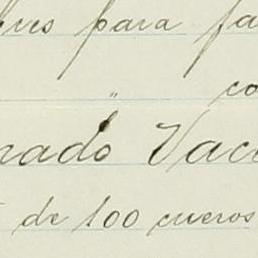 para fa
" co
nado Vac
de 100 cueros